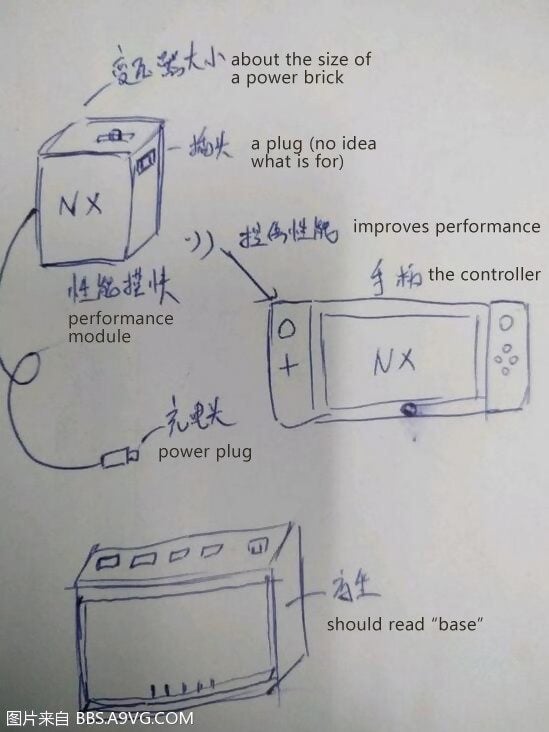 变压器大小 about the size of
a power brick
插头 a plug (no idea
what is for)
NX
提高性能 improves performance
手柄 the controller
性能模块
performance
module
NX
充电头
power plug
should read “base”
图片来自 BBS.A9VG.COM